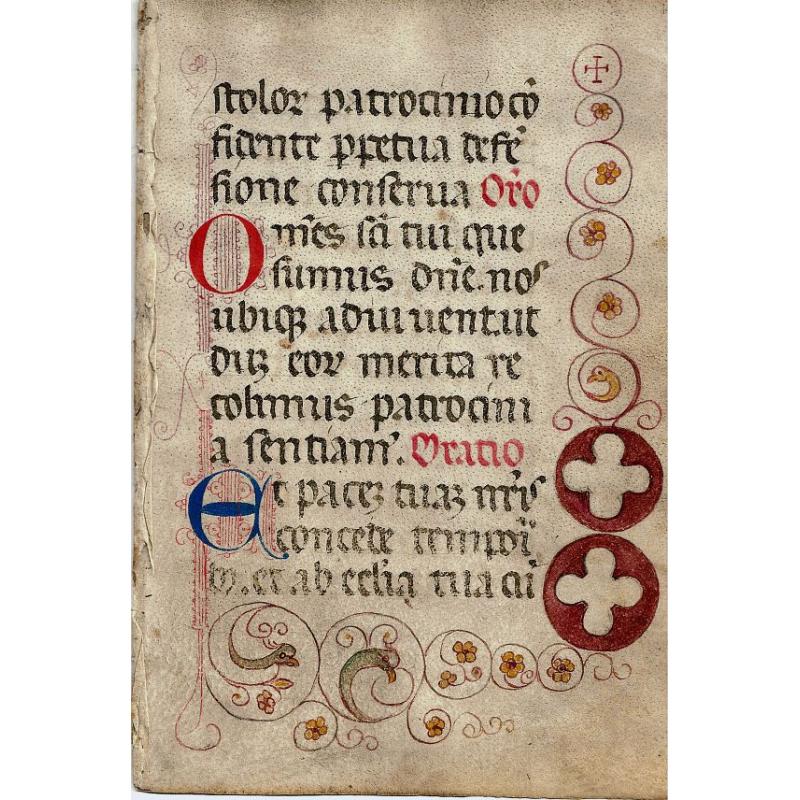 stoloꝝ patrocinio cō
fidente ꝑpetua defē
sione conserua Orō
Omēs scī tui que
sumus dn̄e. nos
ubiqꝫ adiuuent.ut
dūꝫ eoꝝ merita re
colimus patrocini
a sentiamꝰ. Oratio
Et paceꝫ tuaꝫ nr̄is
concede tempori
bꝫ. et ab ecl̄ia tua cū